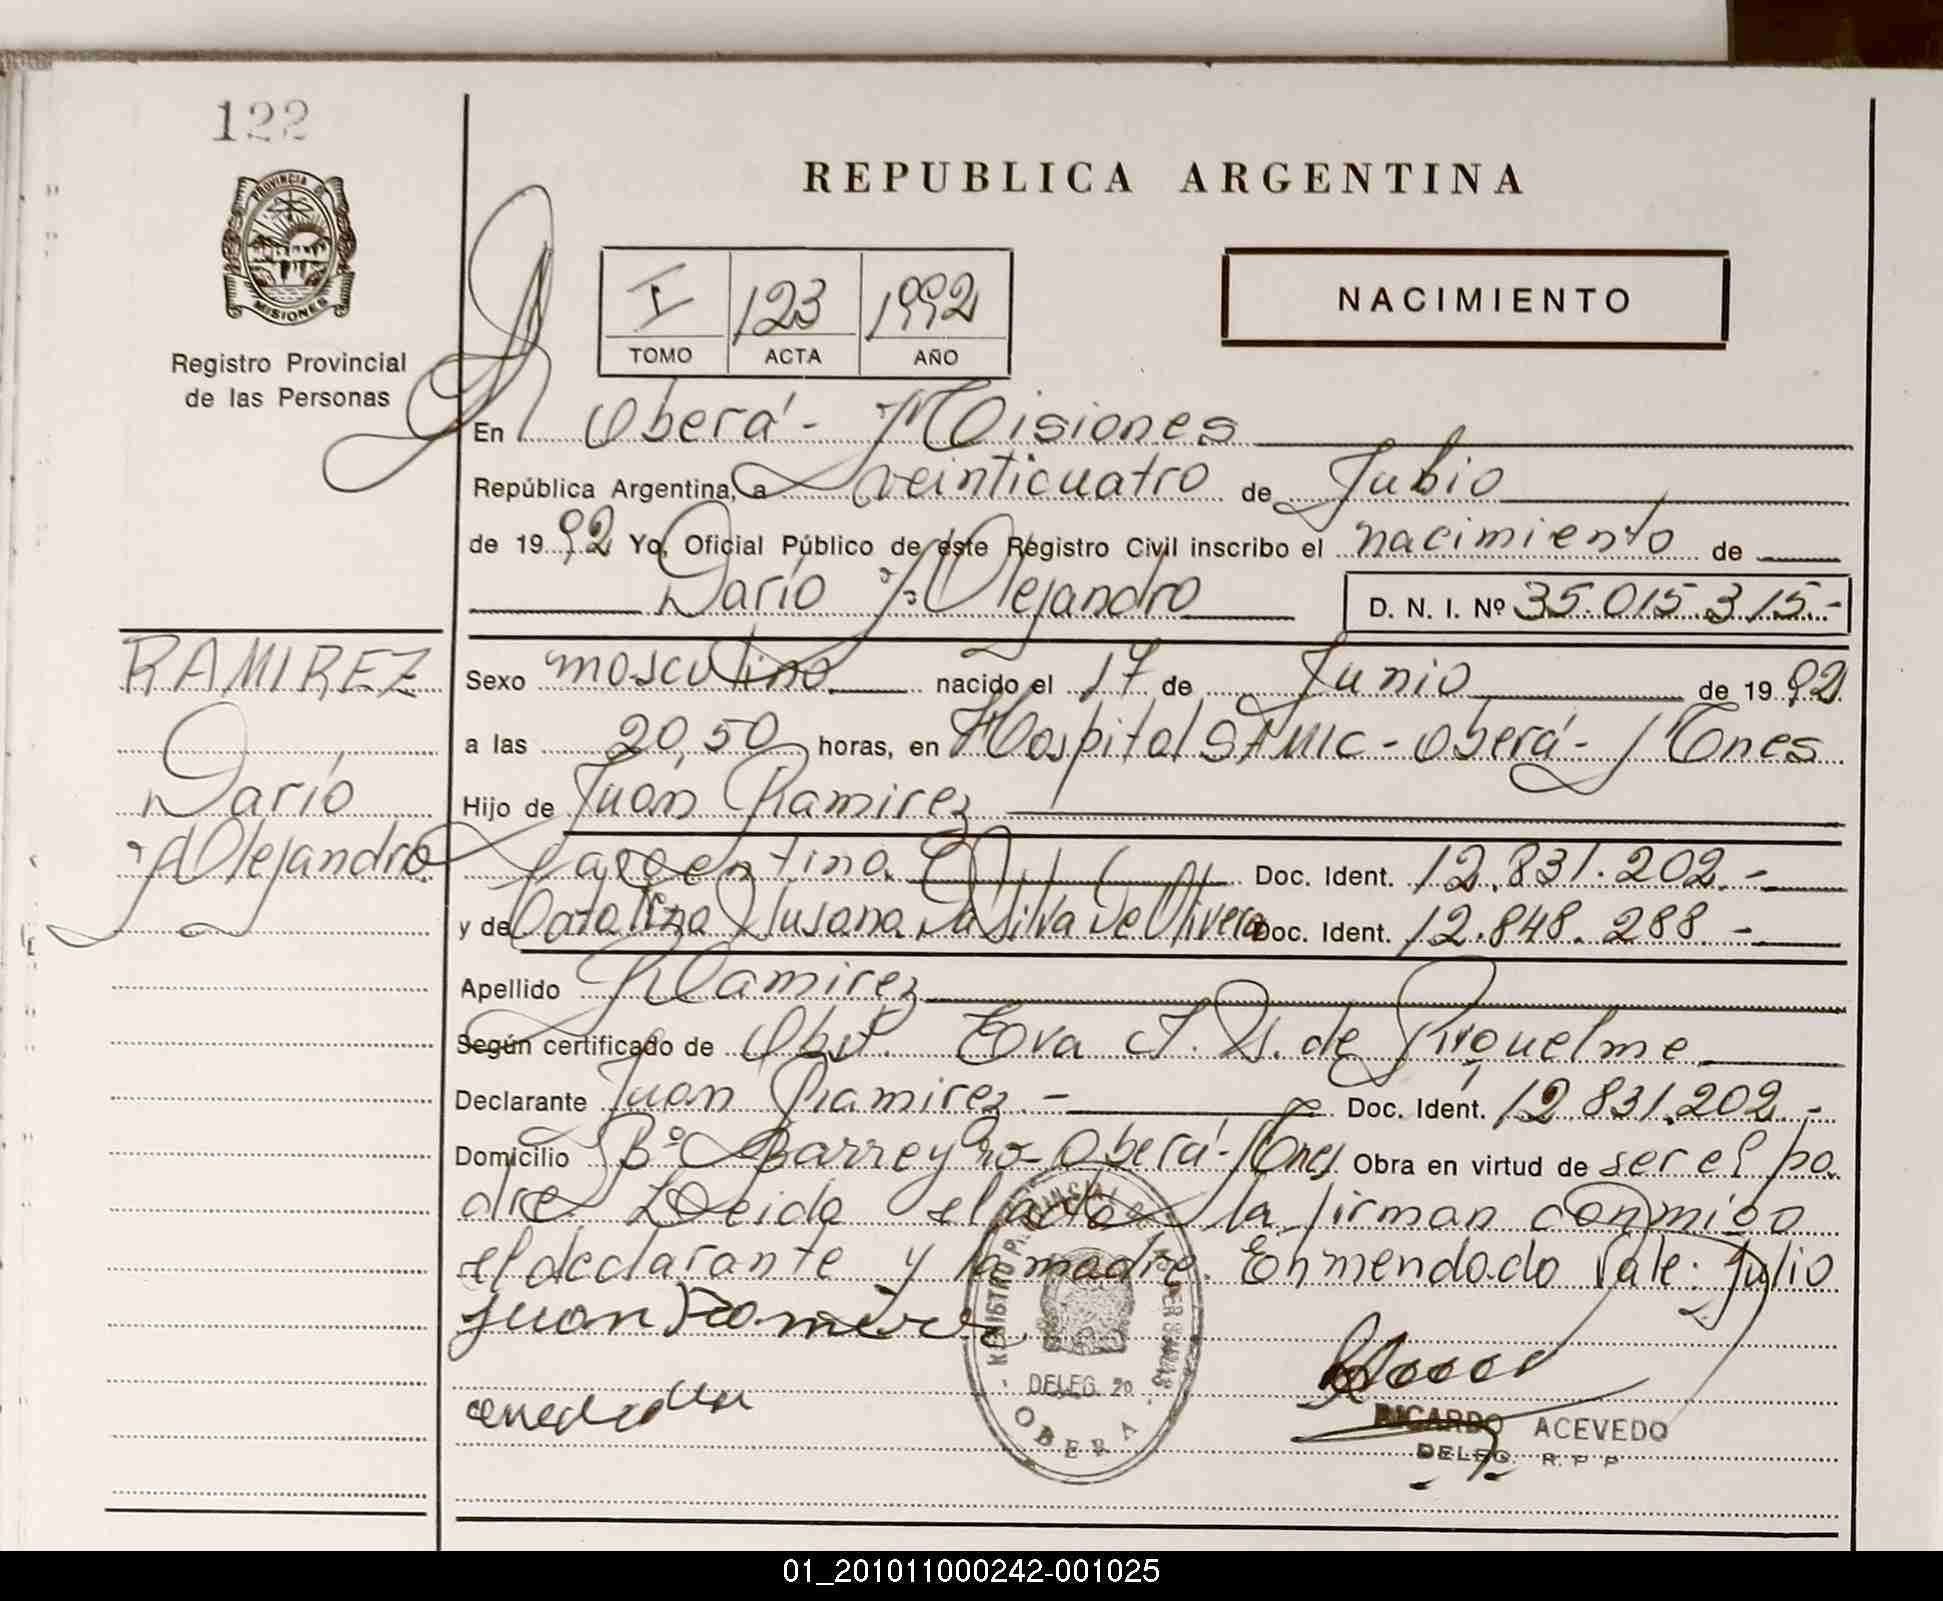 122
PROVINCIA DE
MISIONES
Registro Provincial
de las Personas
REPUBLICA ARGENTINA
I 123 1992
TOMO ACTA AÑO
NACIMIENTO
En Oberá - Misiones
República Argentina, a veinticuatro de Julio
de 1992 Yo, Oficial Público de este Registro Civil inscribo el nacimiento de
Darío Alejandro D. N. I. Nº 35.015.315.-
RAMIREZ
Darío
Alejandro
Sexo masculino nacido el 17 de Junio de 1992
a las 20,50 horas, en Hospital SAMIC - Oberá - Mnes
Hijo de Juan Ramirez
argentina Doc. Ident. 12.831.202.-
y de Catalina Susana Da Silva De Olivera Doc. Ident. 12.848.288 -
Apellido Ramirez
Según certificado de Obst. Eva de Riquelme
Declarante Juan Ramirez.- Doc. Ident. 12.831.202.-
Domicilio Bº Barreyro - Oberá - Mnes Obra en virtud de ser el pa
dre Leida el acta la firman conmigo
el declarante y la madre. Enmendado Vale: Julio
Juan Ramirez
REGISTRO PROVINCIAL DE LAS PERSONAS
DELEG. 20
OBERA
RICARDO ACEVEDO
DELEG. R. P. P
01_201011000242-001025